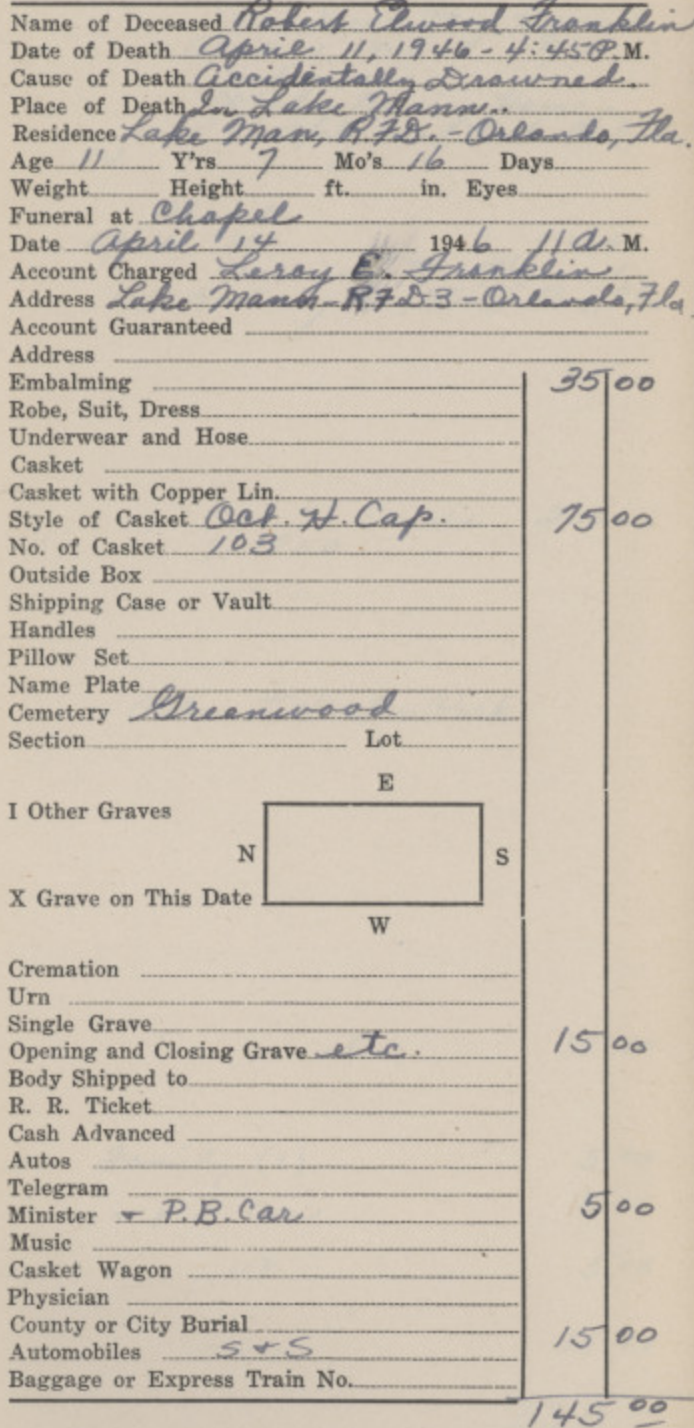 Name of Deceased Robert Elwood Franklin
Date of Death April 11, 1946 - 4:45 P. M.
Cause of Death Accidentally Drowned.
Place of Death In Lake Mann..
Residence Lake Man, R.F.D. - Orlando, Fla.
Age 11 Y'rs 7 Mo's 16 Days
Weight Height ft. in. Eyes
Funeral at Chapel
Date April 14 1946 11 a. M.
Account Charged Leroy E. Franklin
Address Lake Mann - R F D 3 - Orlando, Fla.
Account Guaranteed
Address
Embalming 35 00
Robe, Suit, Dress
Underwear and Hose
Casket
Casket with Copper Lin.
Style of Casket Oct. H. Cap. 75 00
No. of Casket 103
Outside Box
Shipping Case or Vault
Handles
Pillow Set
Name Plate
Cemetery Greenwood
Section Lot
E
I Other Graves
N S
X Grave on This Date
W
Cremation
Urn
Single Grave
Opening and Closing Grave etc. 15 00
Body Shipped to
R. R. Ticket
Cash Advanced
Autos
Telegram
Minister + P.B. Car 5 00
Music
Casket Wagon
Physician
County or City Burial
Automobiles S + S 15 00
Baggage or Express Train No.
145 00